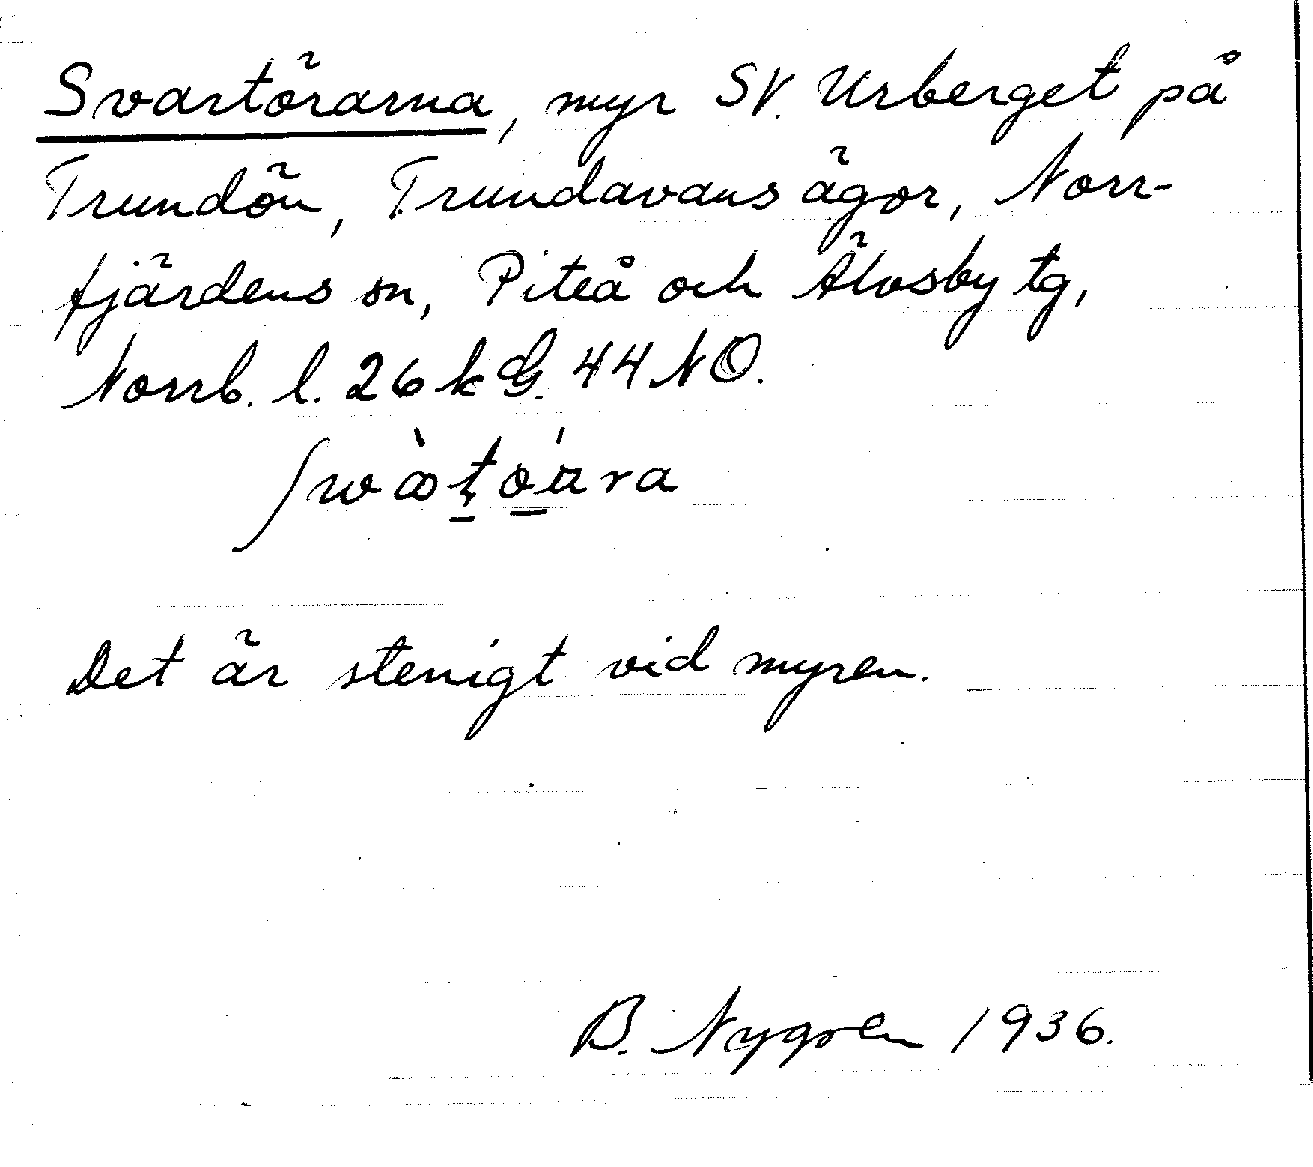 Svartörarna, myr SV. Urberget på
Trundön, Trundavans ägor, Norr-
fjärdens sn, Piteå och Älvsby tg,
Norrb. l. 26 k G. 44 NO.
Det är stenigt vid myren.
B. Nygren 1936.